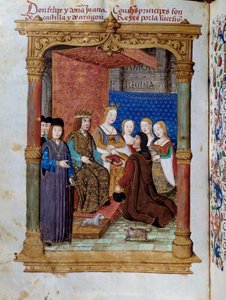 Don felipe y doña Juana Con los principes son
de castilla y de aragon Reyes por la sucesio
REGINA